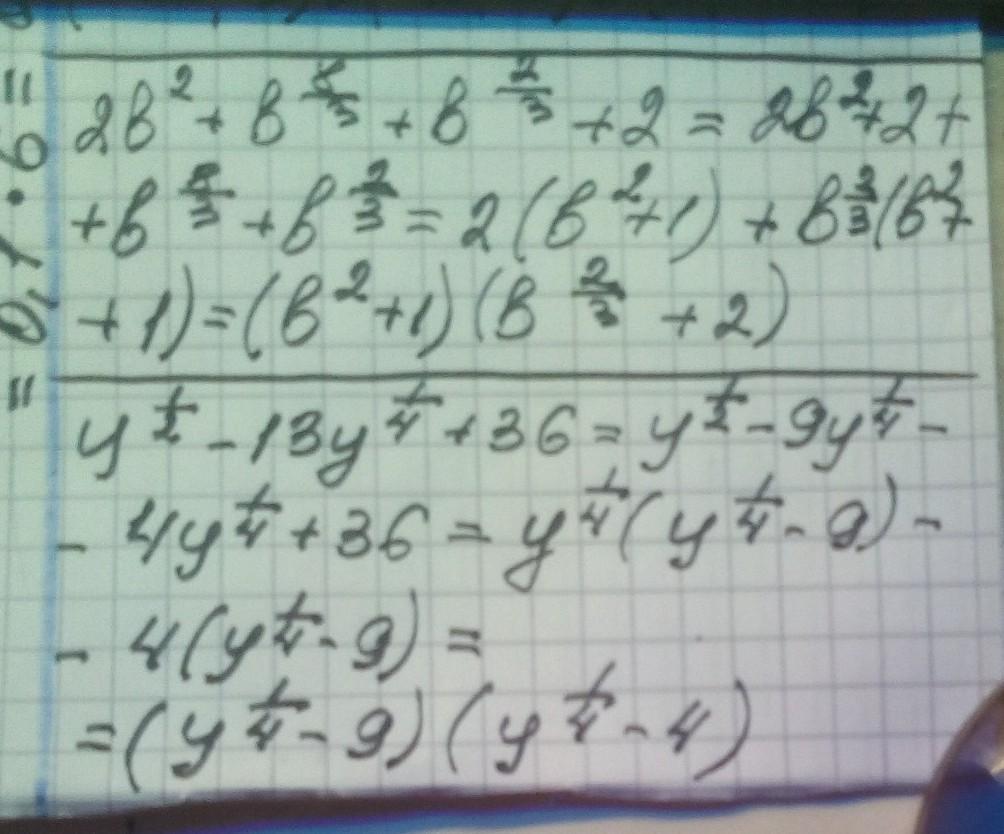 2b² + b^(8/3) + b^(2/3) + 2 = 2b² + 2 +
+ b^(8/3) + b^(2/3) = 2(b² + 1) + b^(2/3)(b² +
+ 1) = (b² + 1)(b^(2/3) + 2)
y^(1/2) - 13y^(1/4) + 36 = y^(1/2) - 9y^(1/4) -
- 4y^(1/4) + 36 = y^(1/4)(y^(1/4) - 9) -
- 4(y^(1/4) - 9) =
= (y^(1/4) - 9)(y^(1/4) - 4)
= 0,1 · 6 =